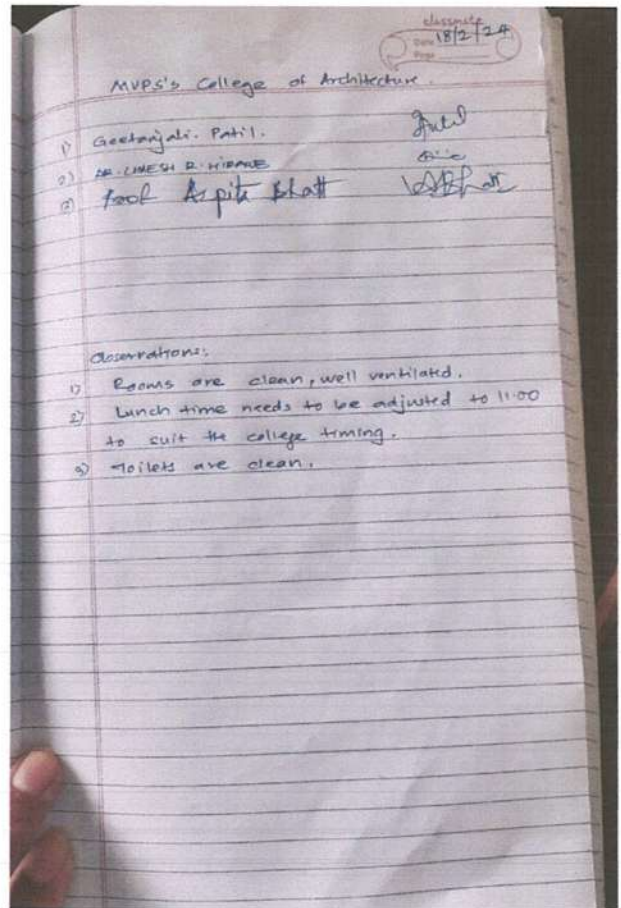 classmate
Date 18/2/24
Page
MVPS's College of Architecture.
1) Geetanjali. Patil.
2) AR. UMESH R. HIRAVE
3) Prof Arpita Bhatt
Observations:
1) Rooms are clean, well ventilated.
2) Lunch time needs to be adjusted to 11.00
to suit the college timing.
3) Toilets are clean.